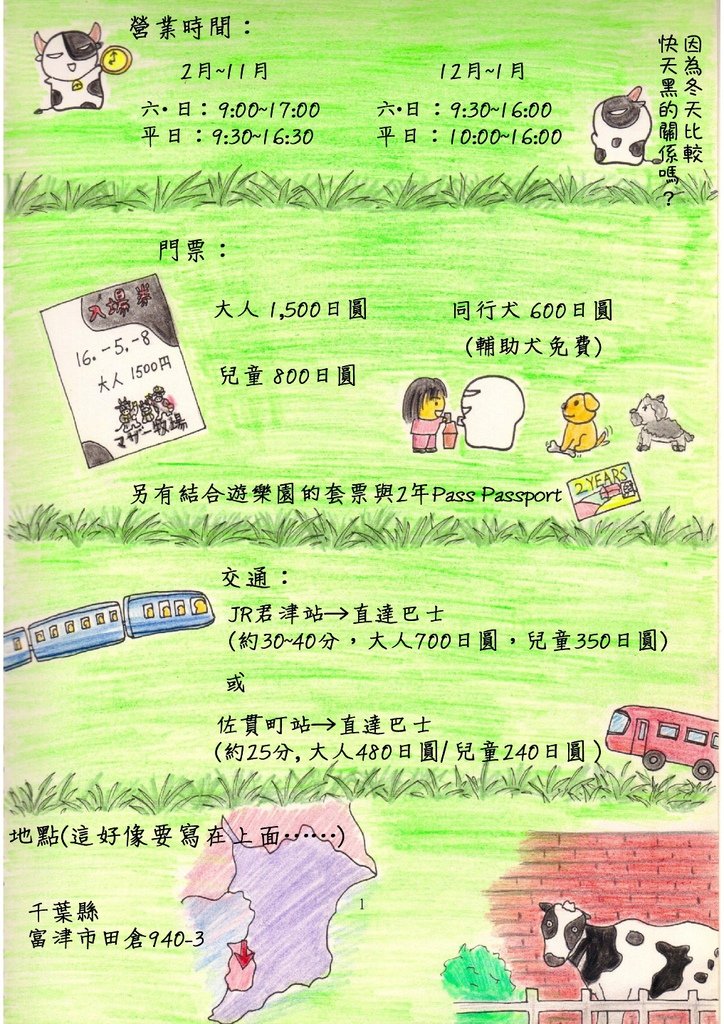 營業時間：
2月~11月
六·日：9:00~17:00
平日：9:30~16:30
12月~1月
六·日：9:30~16:00
平日：10:00~16:00
因為冬天比較
快天黑的關係嗎？
門票：
入場券
16.-5.-8
大人 1500円
マザー牧場
大人 1,500日圓
兒童 800日圓
同行犬 600日圓
(輔助犬免費)
另有結合遊樂園的套票與2年Pass Passport
2 YEARS
交通：
JR君津站→直達巴士
(約30~40分，大人700日圓，兒童350日圓)
或
佐貫町站→直達巴士
(約25分,大人480日圓/兒童240日圓)
地點(這好像要寫在上面……)
千葉縣
富津市田倉940-3
1